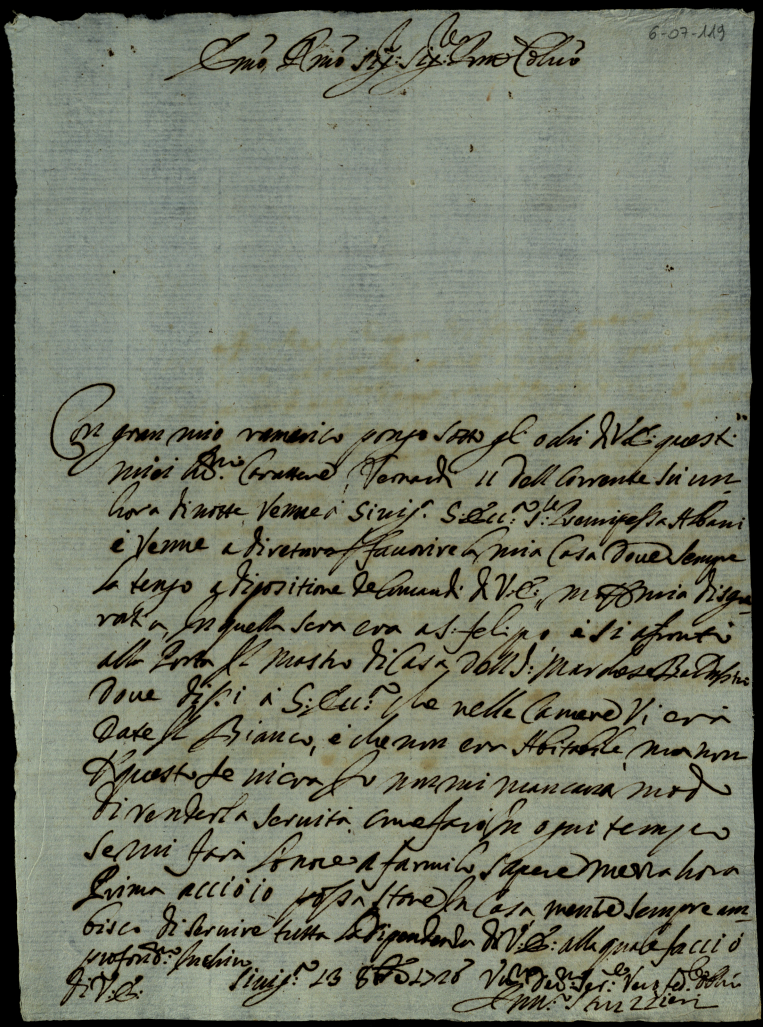 6-07-119
Emo, Rmo Sig: Sig:re Pne Colmo
Con gran mio ramarico pongo sotto gl'ochi di V.E: questi
miei
11 dell corrente su un
hora di notte Venne à Sinig.a S: Ecc.a S:ra Prencipessa Albani
e Venne a diretura favorire la mia Casa dove sempre
la tengo a dispositione de Comandi di V:E:, mia disgra
tia, In quella sera era a S: felipo, e si afrontò
alla Porta Il Mastro di Casa Dell S: Marchese
Dove dissi à S: Ecc.a che nelle Camere Vi era
Date Il Bianco, e che non era Abitabile, ma non
Di questo se ni era non mi mancava modo
di renderla servita, come farò In ogni tempo
se mi farà l'onore a farmilo sapere mezza hora
Prima acciò io possa stare In Casa, mentre sempre am
bisco di servire tutta la dipendenza di V:E: alla quale faccio
profond.mo Inchino
di V:E: Sinig.a 13 8bre 1726